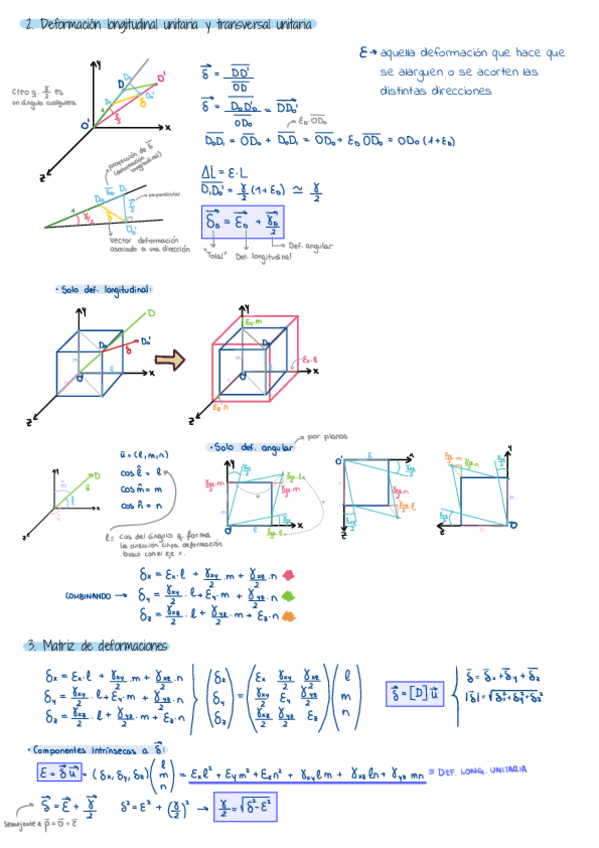 2. Deformación longitudinal unitaria y transversal unitaria
ε → aquella deformación que hace que
se alarguen o se acorten las
distintas direcciones
Creo q. γ/2 es
un ángulo cualquiera
δ⃗ = DD'/OD
δ⃗ = D₀D₀'/OD₀ = DD₀'
ε_D·OD₀
D₀D₁ = OD₀ + D₀D₁ = OD₀ + ε_D OD₀ = OD₀ (1+ε_D)
proporción de δ⃗
(deformación
longitudinal)
perpendicular
Vector deformación
asociado a una dirección
ΔL = ε·L
D₁D₀' = γ/2 (1+ε_D) ≃ γ/2
δ⃗_D = ε⃗_D + γ⃗_D/2
"Total"
Def. longitudinal
Def. angular
• Solo def. longitudinal:
Y
D
D₀
D₀'
δ
X
Z
Y
ε_y·m
D₀
ε_x·l
X
ε_z·n
Z
• Solo def. angular
por planos
u⃗ = (l, m, n)
cos l̂ = l
cos m̂ = m
cos n̂ = n
l = cos del ángulo q. forma
la dirección cuya deformación
busco con el eje x.
COMBINANDO →
δx = εx·l + γxy/2·m + γxz/2·n
δy = γxy/2·l + εy·m + γyz/2·n
δz = γxz/2·l + γyz/2·m + εz·n
3. Matriz de deformaciones
δx = εx·l + γxy/2·m + γxz/2·n
δy = γxy/2·l + εy·m + γyz/2·n
δz = γxz/2·l + γyz/2·m + εz·n
(δx δy δz) = (εx γxy/2 γxz/2; γxy/2 εy γyz/2; γxz/2 γyz/2 εz) (l m n)
δ⃗ = [D] u⃗
δ⃗ = δ⃗x + δ⃗y + δ⃗z
|δ⃗| = √δx²+δy²+δz²
• Componentes intrínsecas a δ⃗:
ε = δ⃗ u⃗ = (δx, δy, δz) (l m n) = εx l² + εy m² + εz n² + γxy lm + γxz ln + γyz mn = DEF. LONG. UNITARIA
δ⃗ = ε⃗ + γ⃗/2
δ² = ε² + (γ/2)² → γ/2 = √δ²-ε²
Semejante a ρ⃗ = σ⃗ + τ⃗